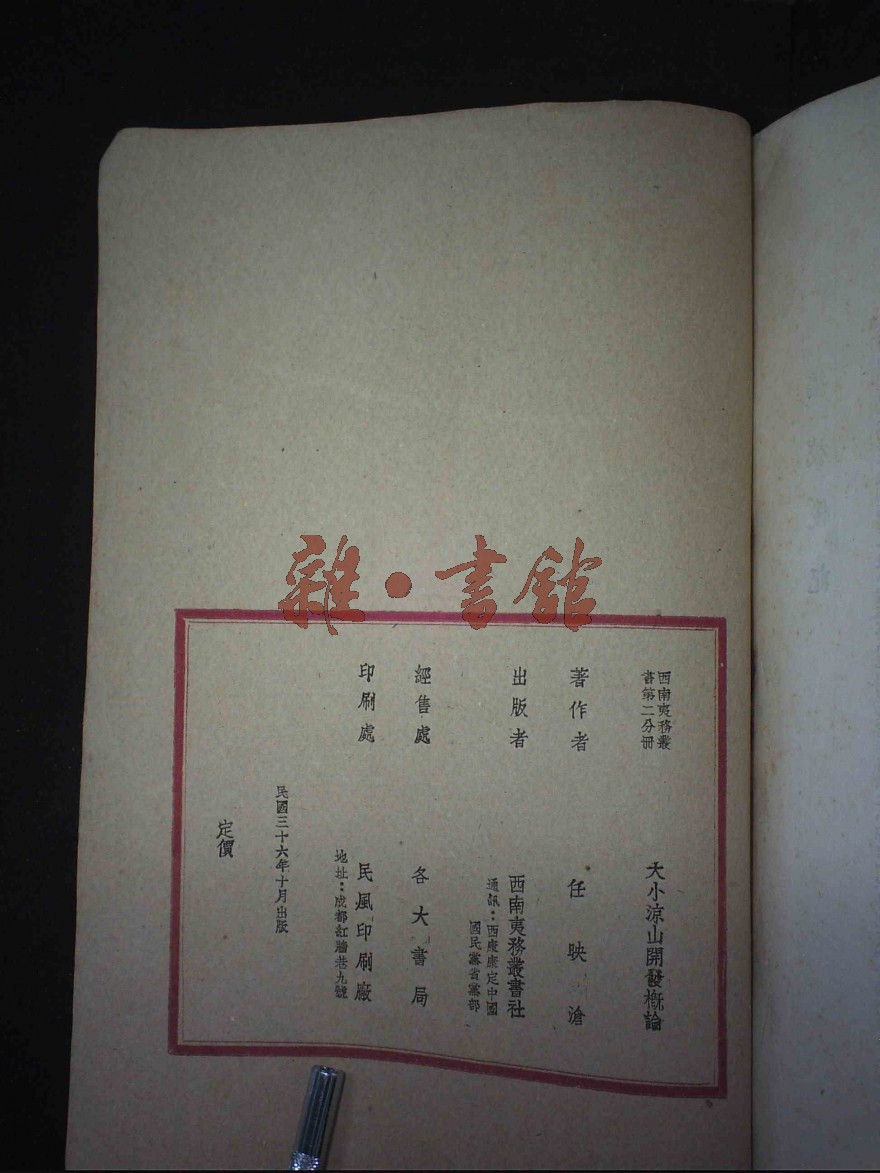 雜·書館
西南夷務叢
書第二分冊
大小涼山開發概論
著作者
任映滄
出版者
西南夷務叢書社
通訊：西康康定中國
國民黨省黨部
經售處
各大書局
印刷處
民風印刷廠
地址：成都紅牆巷九號
民國三十六年十月出版
定價